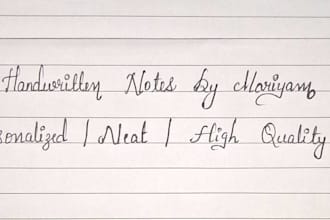 Handwritten Notes by Mariyam
sonalized | Neat | High Quality